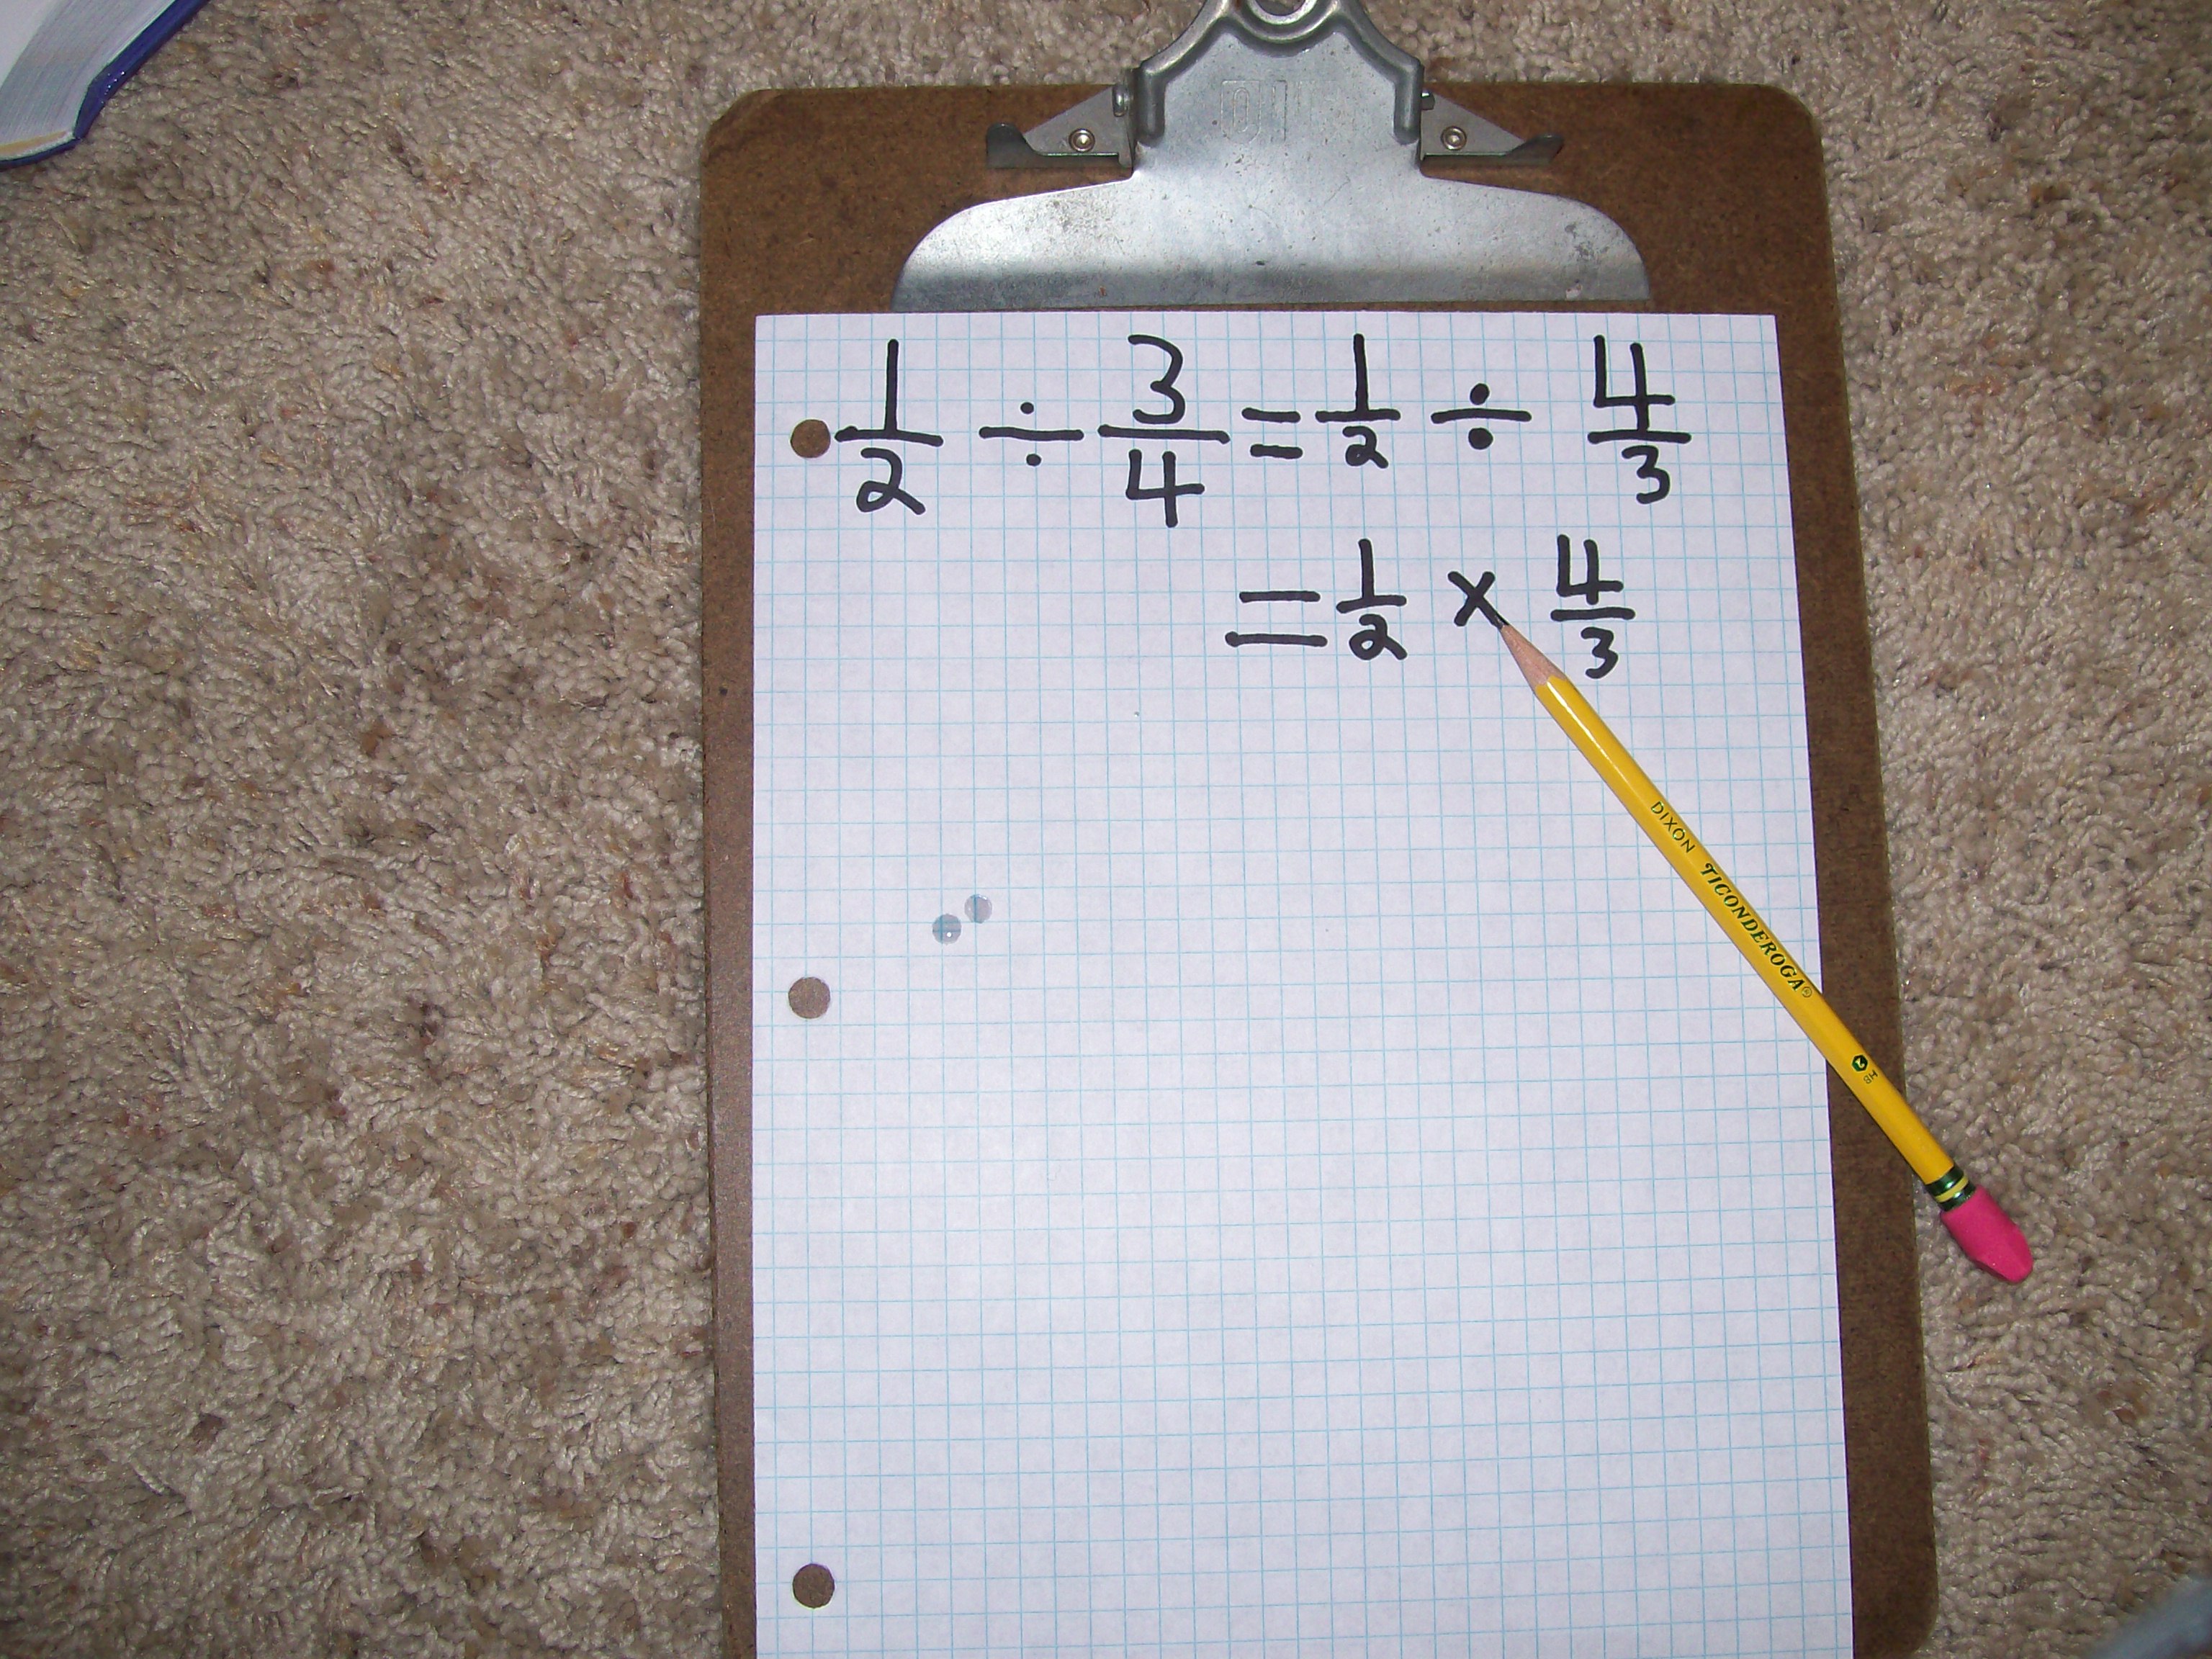 1/2 ÷ 3/4 = 1/2 ÷ 4/3
= 1/2 × 4/3
DIXON TICONDEROGA®
HB